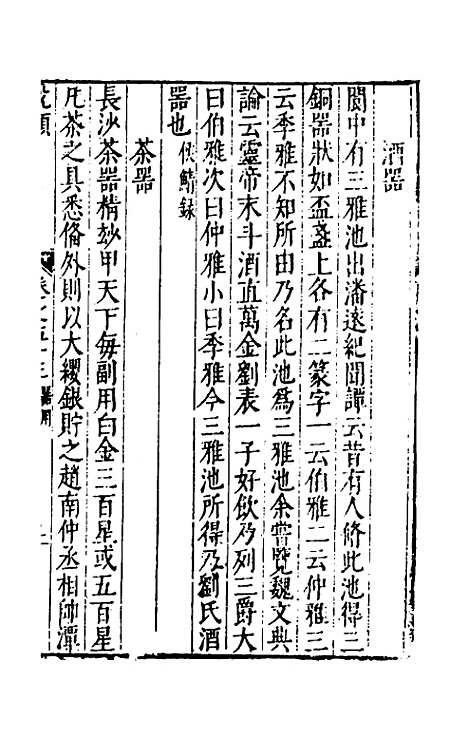 酒器
閬中有三雅池出潘遠紀聞譚云昔有人修此池得三
銅器狀如盃盞上各有二篆字一云伯雅二云仲雅三
云季雅不知所由乃名此池為三雅池余嘗覽魏文典
論云靈帝末斗酒直萬金劉表一子好飲乃列三爵大
曰伯雅次曰仲雅小曰季雅今三雅池所得乃劉氏酒
器也侯鯖録
茶器
長沙茶器精玅甲天下每副用白金三百星或五百星
凡茶之具悉俻外則以大纓銀貯之趙南仲丞相帥潭
說類
卷之五十三 器用